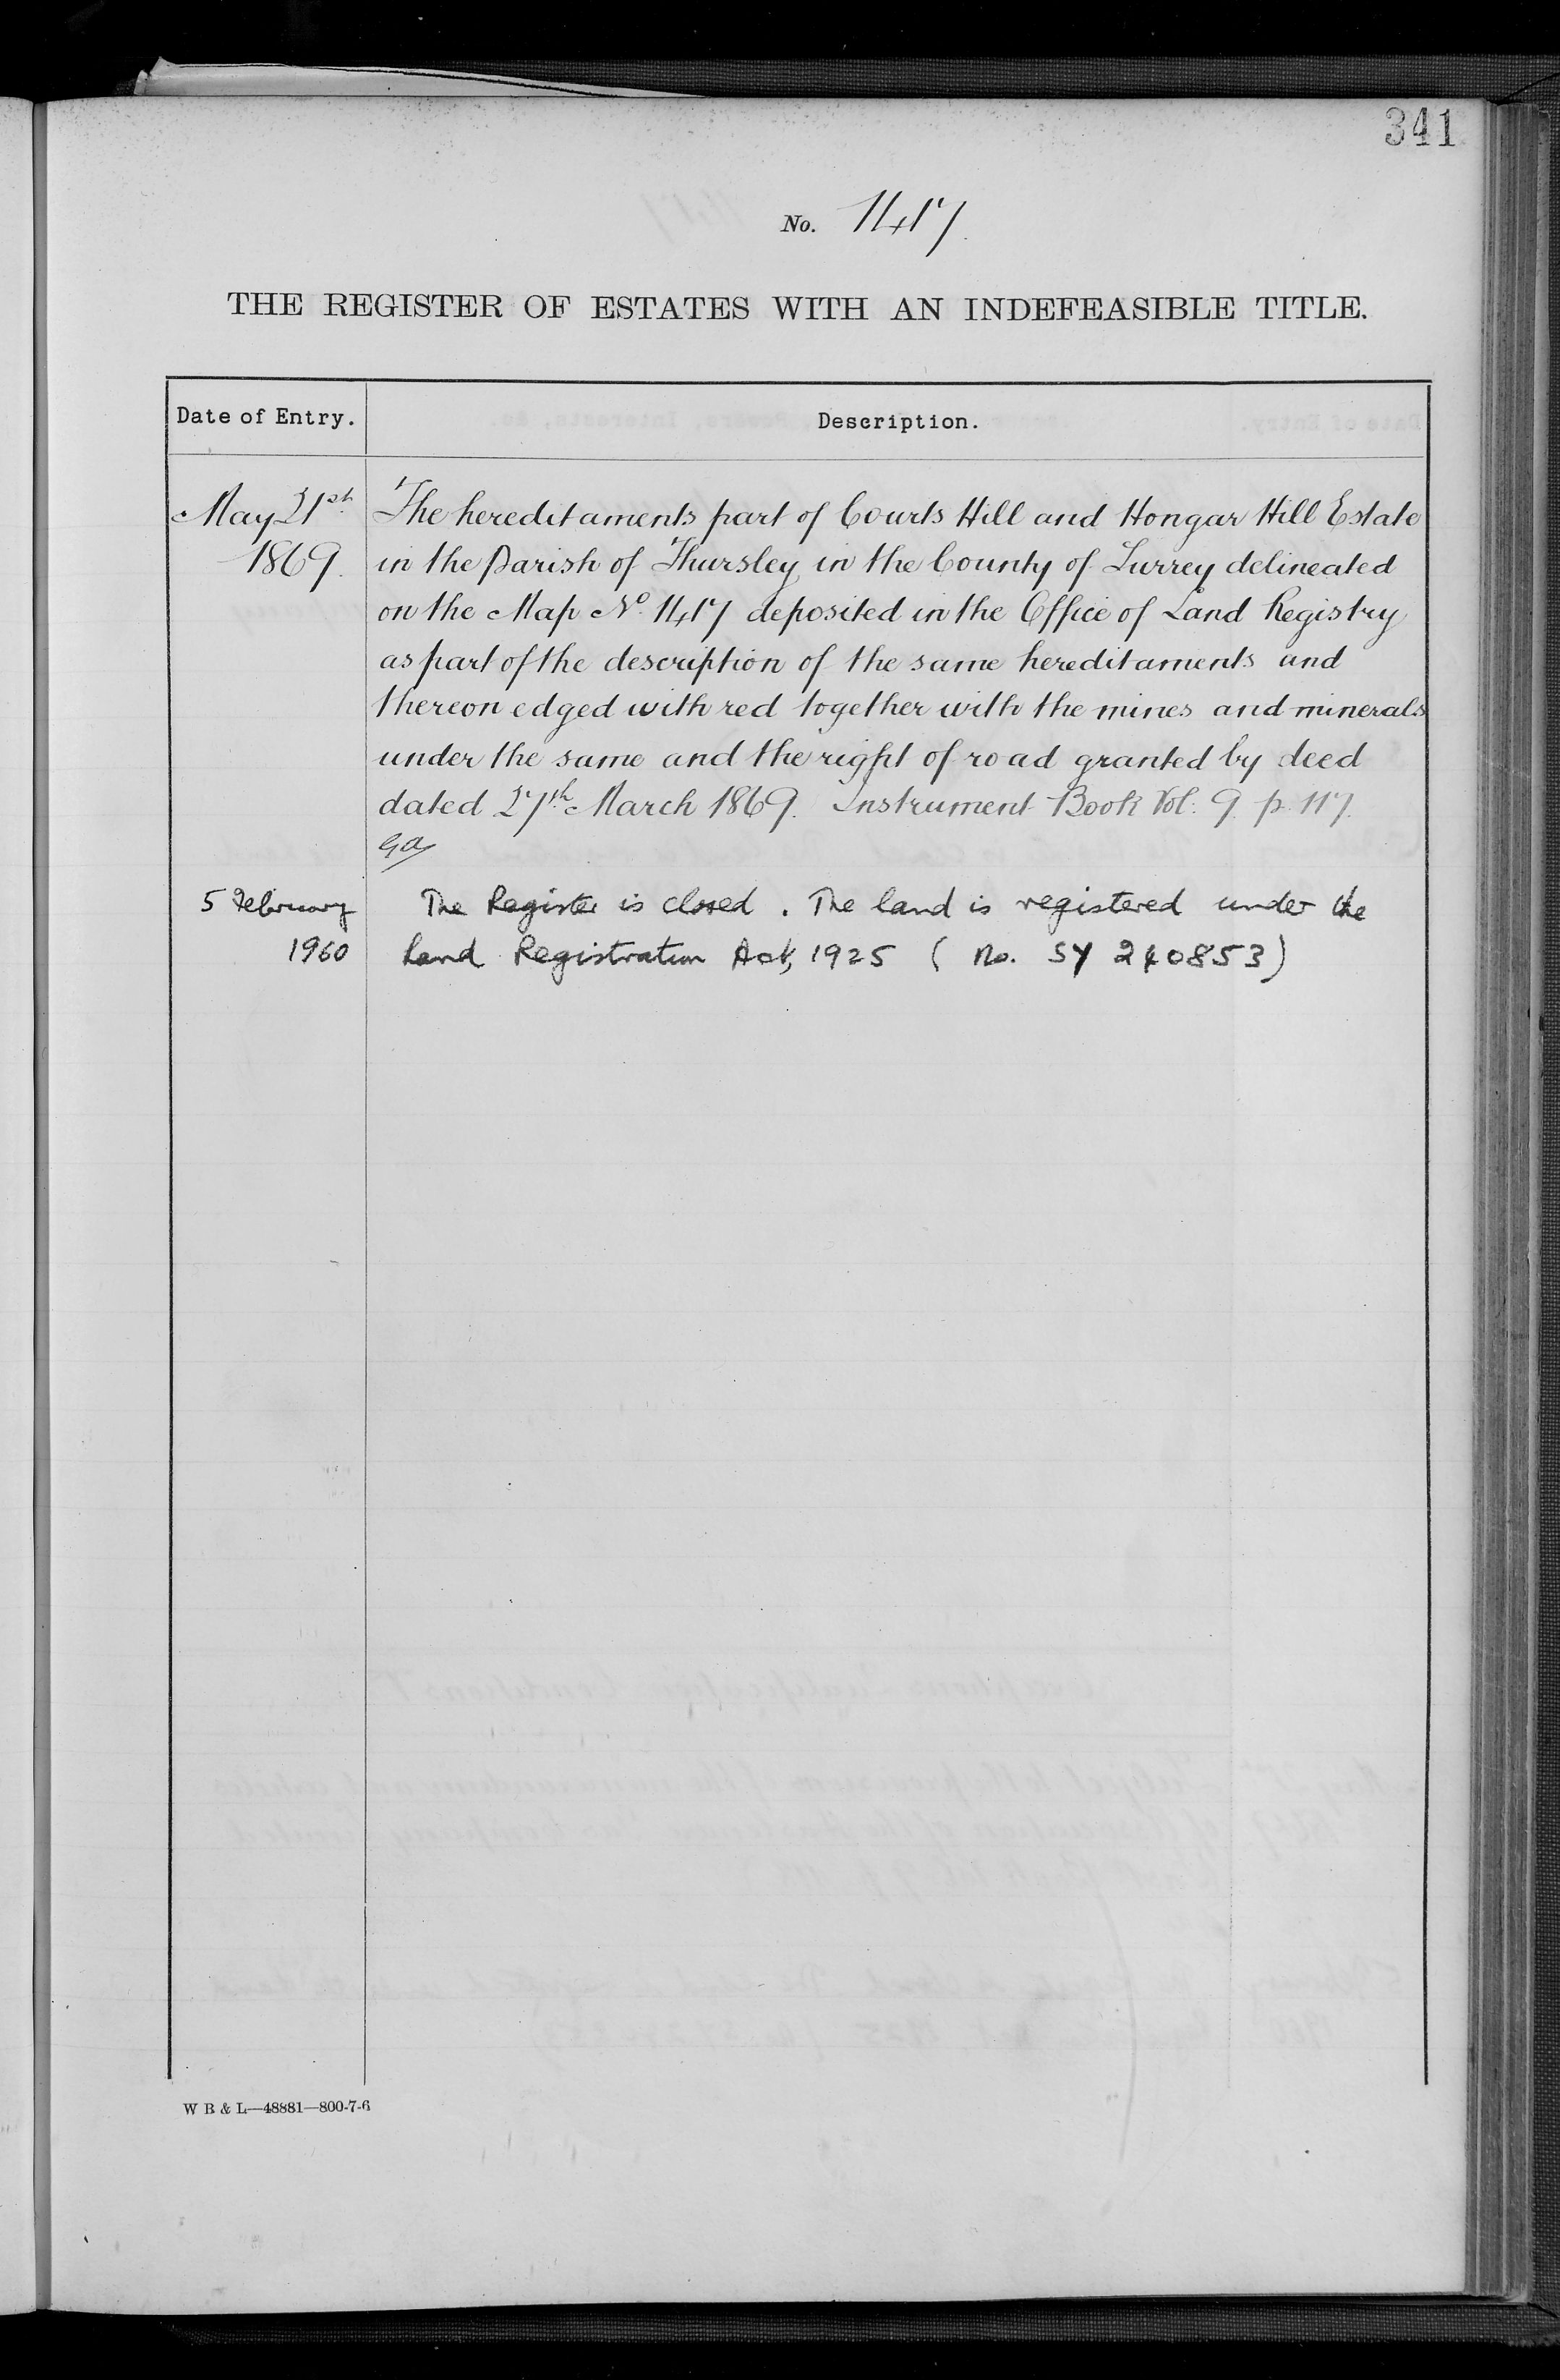 341
No. 1417.
THE REGISTER OF ESTATES WITH AN INDEFEASIBLE TITLE.
Date of Entry. Description.
May 21st The hereditaments part of Courts Hill and Hongar Hill Estate
1869. in the Parish of Thursley in the County of Surrey delineated
on the Map No. 1417 deposited in the Office of Land Registry
as part of the description of the same hereditaments and
thereon edged with red together with the mines and minerals
under the same and the right of road granted by deed
dated 27th March 1869. Instrument Book Vol: 9. p. 117.
5 February The Register is closed. The land is registered under the
1960 Land Registration Act, 1925 (No. SY 240853)
W B & L—48881—800-7-6